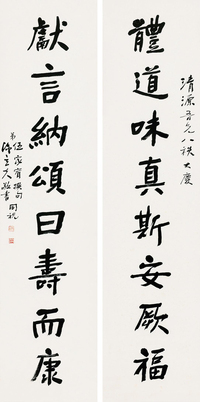 清源吾兄八秩大慶
體道味真斯安厥福
獻言納頌曰壽而康
弟伍家宥撰句
陳立夫敬書同祝